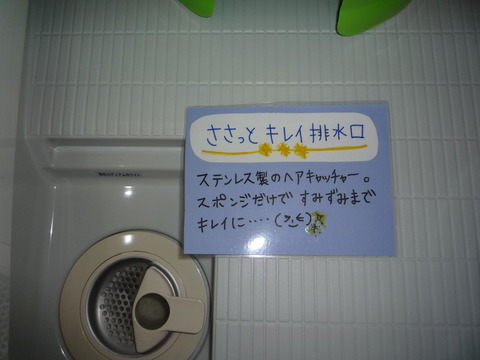 ささっと キレイ 排水口
ステンレス製のヘアキャッチャー。
スポンジだけで すみずみまで
キレイに‥‥